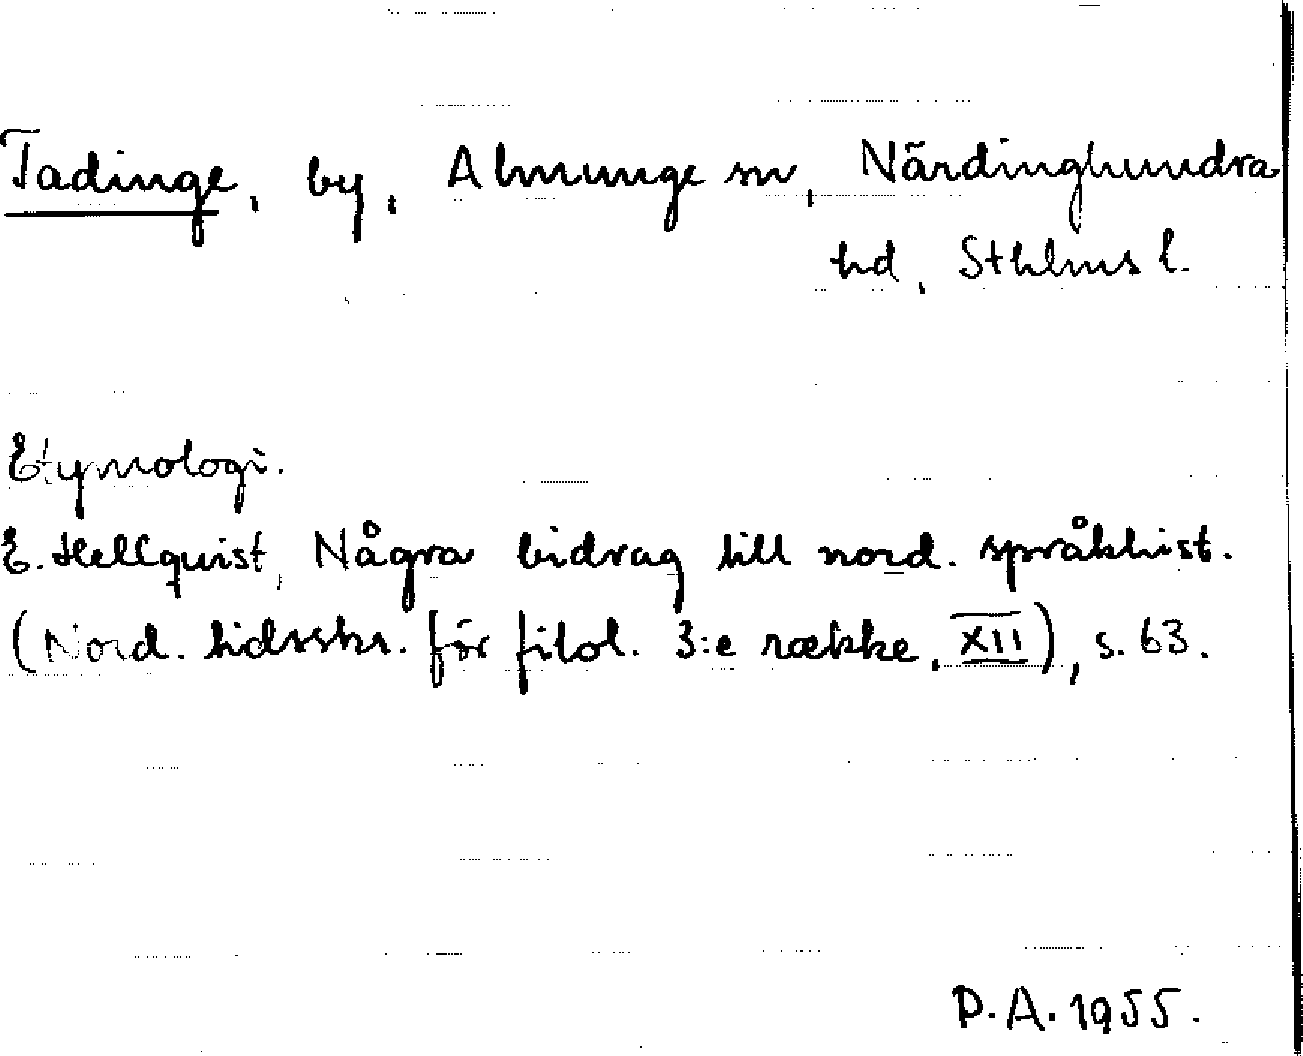 Tadinge, by, Almunge sn, Närdinghundra
hd, Sthlms l.
Etymologi.
E. Hellquist, Några bidrag till nord. språkhist.
(Nord. tidsskr. för filol. 3:e række, XII), s. 63.
P.A. 1955.